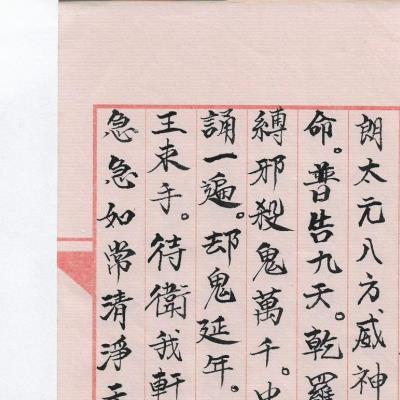 朗太元八方威神
命。普告九天。乾羅
縛邪殺鬼萬千。中
誦一遍。却鬼延年。
王束手。待衛我軒
急急如常清淨